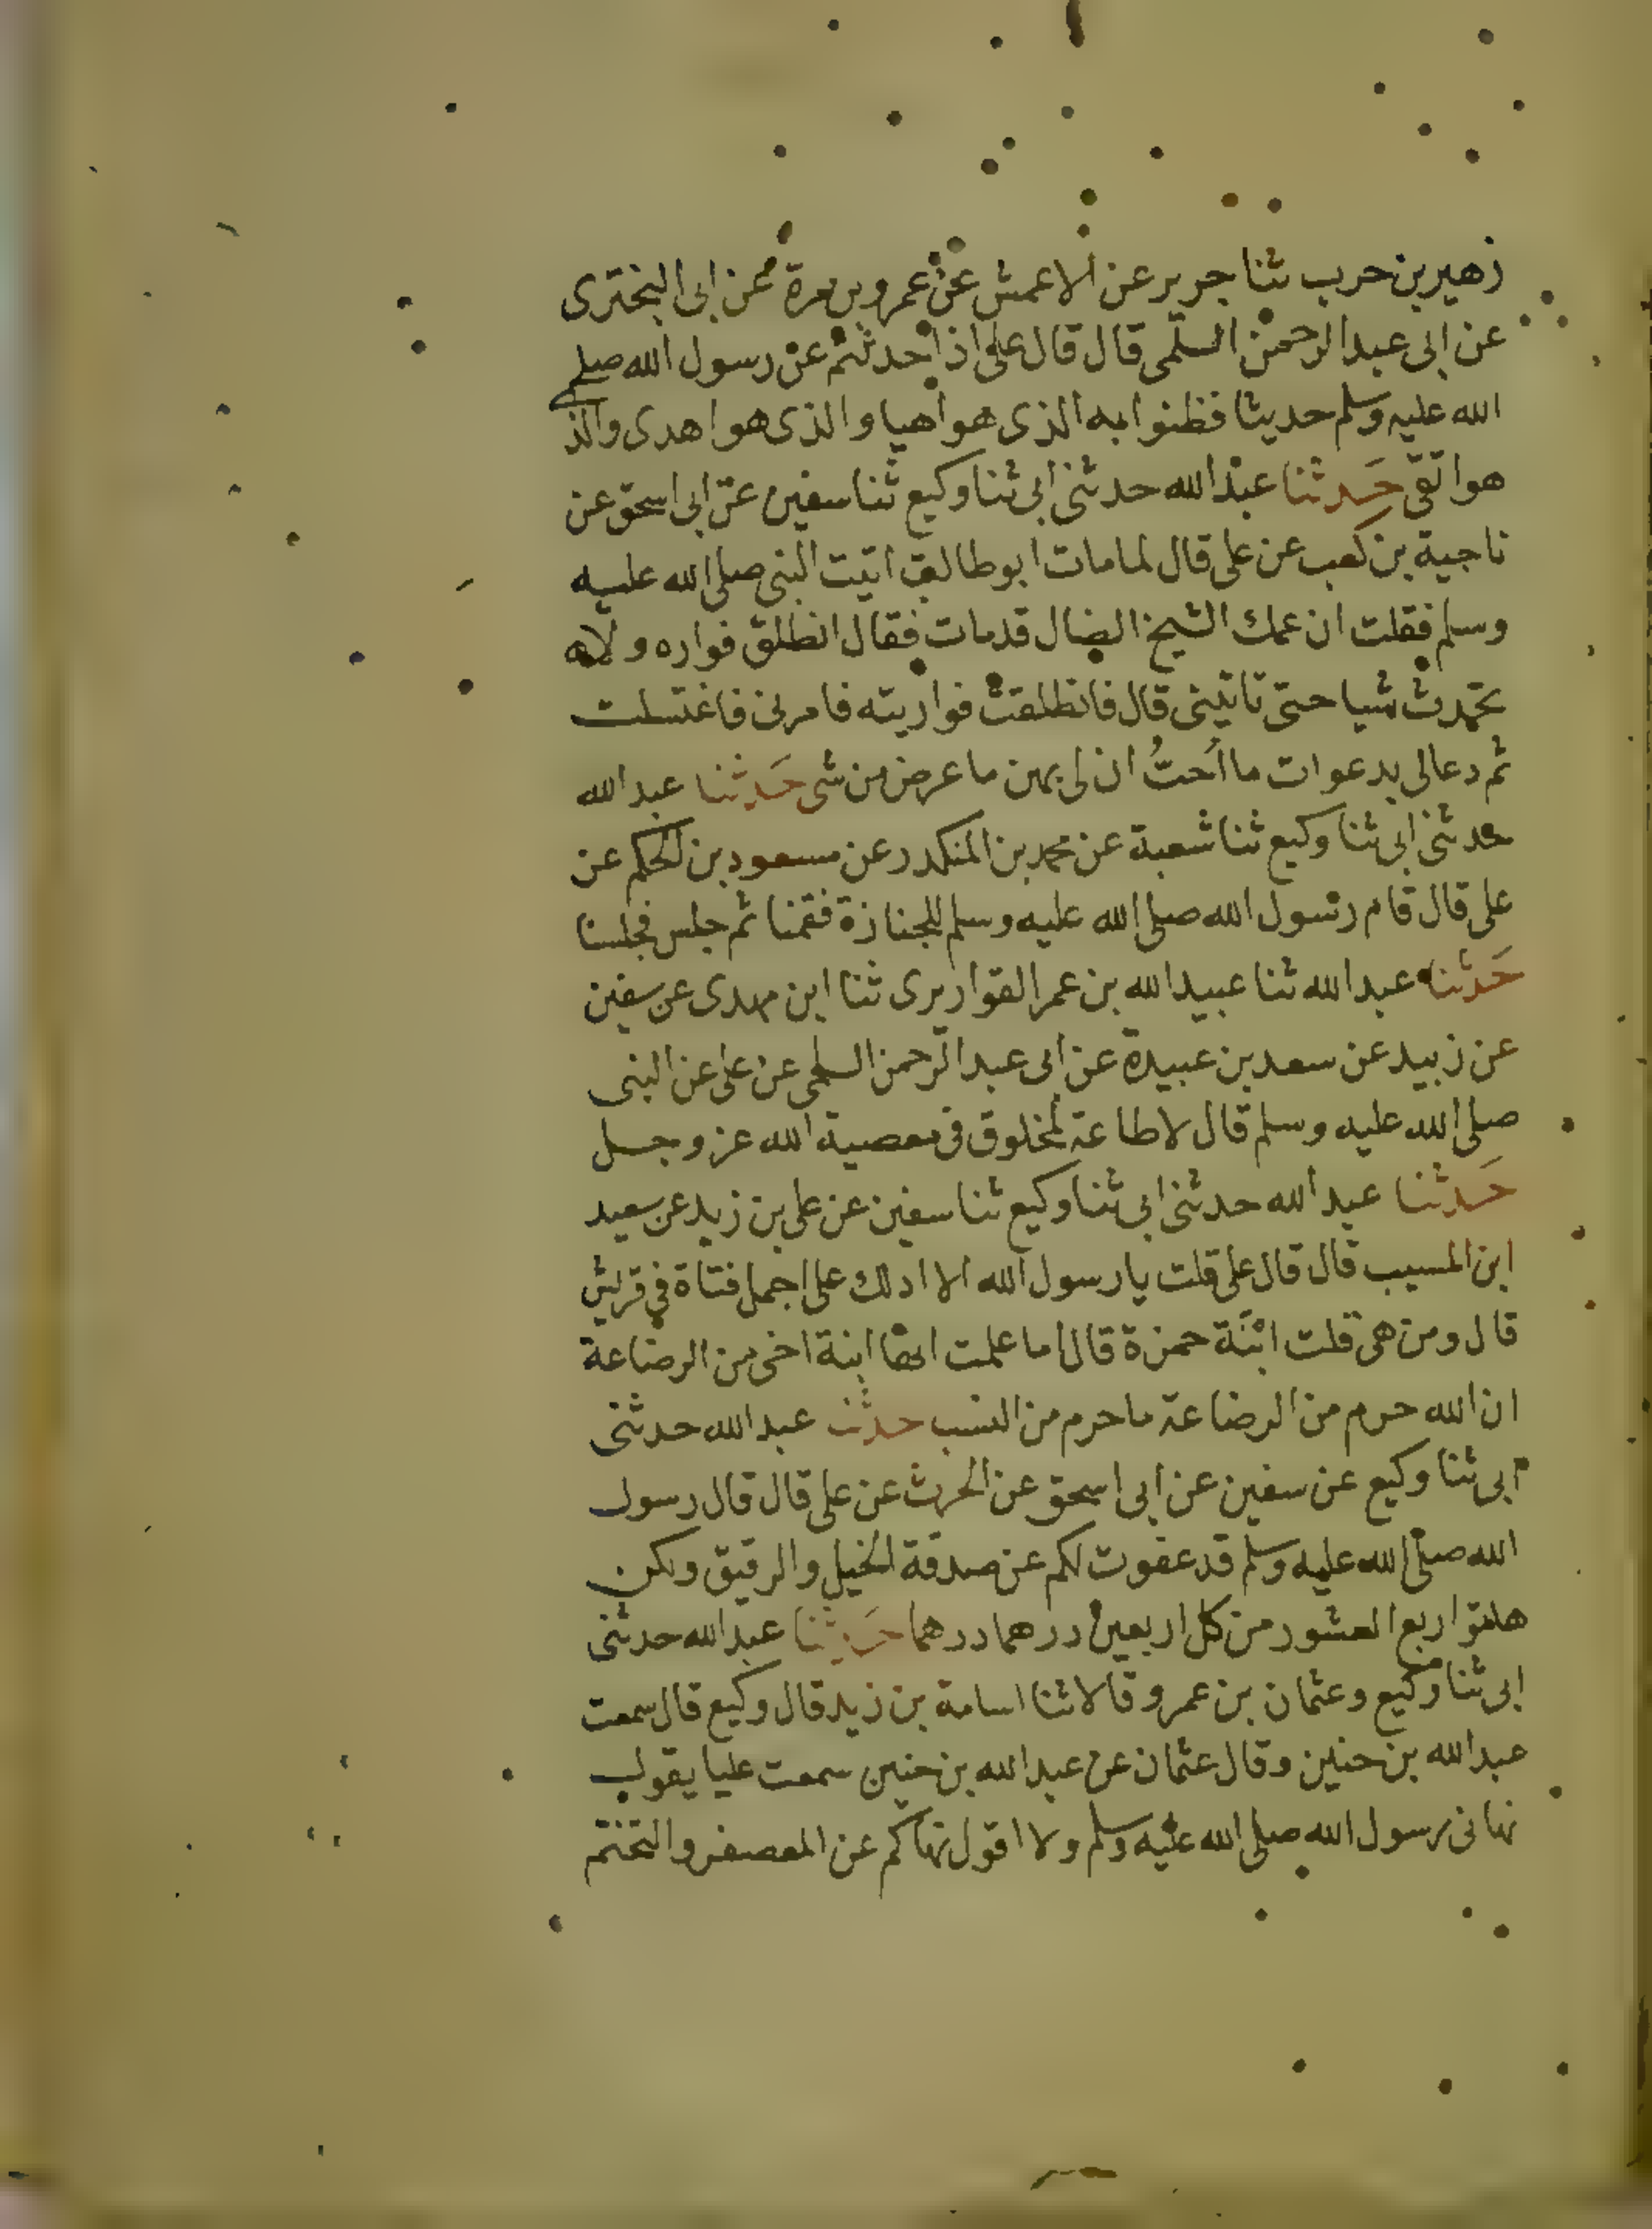 زهير بن حرب ثنا جرير عن الاعمش عن عمرو بن مرة عن ابى البخترى
عن ابى عبد الرحمن السلمى قال قال على اذا حدثتم عن رسول الله صلى
الله عليه وسلم حديثا فظنوا به الذى هو اهيا والذى هو اهدى والذ
هو اتقى حدثنا عبد الله حدثنى ابى ثنا وكيع ثنا سفين عن ابى اسحق عن
ناجية بن كعب عن على قال لما مات ابو طالب اتيت النبى صلى الله عليه
وسلم فقلت ان عمك الشيخ الضال قد مات فقال انطلق فواره ولا
تحدث شيا حتى تاتينى قال فانطلقت فواريته فامرنى فاغتسلت
ثم دعا لى بدعوات ما أحبُّ ان لى بهن ما عرض من شى حدثنا عبد الله
حدثنى ابى ثنا وكيع ثنا شعبة عن محمد بن المنكدر عن مسعود بن الحكم عن
على قال قام رسول الله صلى الله عليه وسلم للجنازة فقمنا ثم جلس فجلسنا
حدثنا عبد الله ثنا عبيد الله بن عمر القواريرى ثنا ابن مهدى عن سفين
عن زبيد عن سعد بن عبيدة عن ابى عبد الرحمن السلمى عن على عن النبى
صلى الله عليه وسلم قال لا طاعة لمخلوق فى معصية الله عز وجل
حدثنا عبد الله حدثنى ابى ثنا وكيع ثنا سفين عن على بن زيد عن سعيد
ابن المسيب قال قال على قلت يا رسول الله الا ادلك على اجمل فتاة فى قريش
قال ومن هى قلت ابنة حمزة قال اما علمت انها ابنة اخى من الرضاعة
ان الله حرم من الرضاعة ما حرم من النسب حدثنا عبد الله حدثنى
ابى ثنا وكيع عن سفين عن ابى اسحق عن الحرث عن على قال قال رسول
الله صلى الله عليه وسلم قد عفوت لكم عن صدقة الخيل والرقيق ولكن
هاتوا ربع العشور من كل اربعين درهما درهما حدثنا عبد الله حدثنى
ابى ثنا وكيع وعثمان بن عمر وقالا ثنا اسامة بن زيد قال وكيع قال سمعت
عبد الله بن حنين وقال عثمان عن عبد الله بن حنين سمعت عليا يقول
نهانى رسول الله صلى الله عليه وسلم ولا اقول نهاكم عن المعصفر والتختم